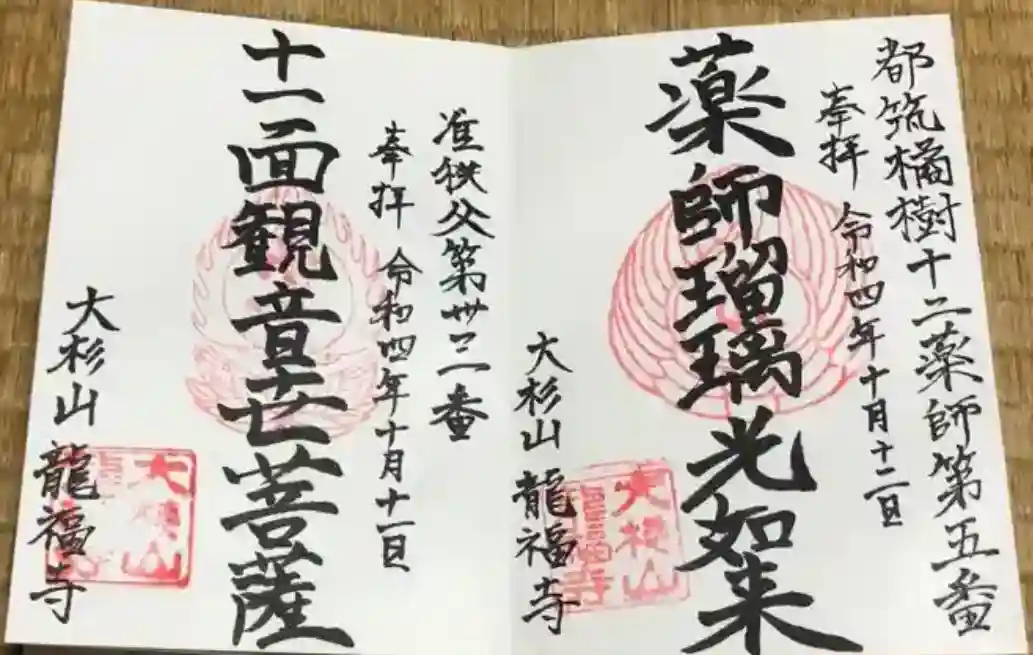 都筑橘樹十二薬師第五番
奉拝 令和四年十月十二日
薬師瑠璃光如来
大杉山 龍福寺
准秩父第卅三番
奉拝 令和四年十月十一日
十一面観音世菩薩
大杉山 龍福寺